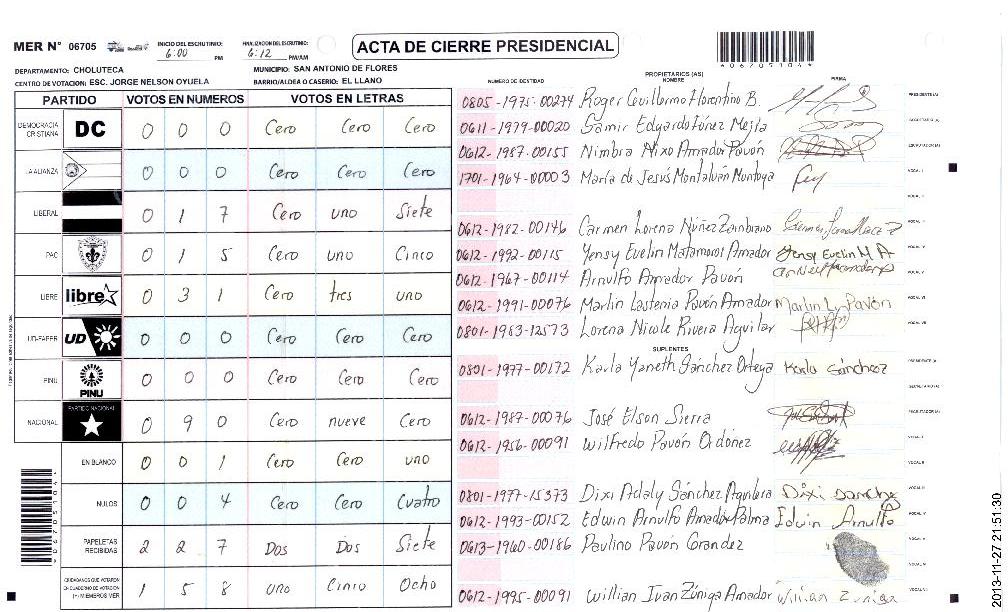 MER N° 06705 INICIO DEL ESCRUTINIO: 6:00 PM FINALIZACION DEL ESCRUTINIO: 6:12 PM/AM
ACTA DE CIERRE PRESIDENCIAL
DEPARTAMENTO: CHOLUTECA MUNICIPIO: SAN ANTONIO DE FLORES
CENTRO DE VOTACION: ESC. JORGE NELSON OYUELA BARRIO/ALDEA O CASERIO: EL LLANO
PARTIDO VOTOS EN NUMEROS VOTOS EN LETRAS
DEMOCRACIA CRISTIANA DC 0 0 0 Cero Cero Cero
LA ALIANZA 0 0 0 Cero Cero Cero
LIBERAL 0 1 7 Cero uno Siete
PAC 0 1 5 Cero uno Cinco
LIBRE libre 0 3 1 Cero tres uno
UD-FAPER UD 0 0 0 Cero Cero Cero
PINU PINU 0 0 0 Cero Cero Cero
NACIONAL PARTIDO NACIONAL 0 9 0 Cero nueve Cero
EN BLANCO 0 0 1 Cero Cero uno
NULOS 0 0 4 Cero Cero Cuatro
PAPELETAS RECIBIDAS 2 2 7 Dos Dos Siete
CIUDADANOS QUE VOTARON EN CUADERNO DE VOTACION (+) MIEMBROS MER 1 5 8 uno Cinco Ocho
NUMERO DE IDENTIDAD PROPIETARIOS (AS) NOMBRE FIRMA
0805-1975-00274 Roger Guillermo Florentino B. PRESIDENTE(A)
0611-1979-00020 Samir Edgardo Fúnez Mejía SECRETARIO(A)
0612-1987-00155 Nimbra Nixo Amador Pavón ESCRUTADOR(A)
1701-1964-00003 María de Jesús Montalván Montoya VOCAL I
VOCAL II
0612-1982-00146 Carmen Lorena Núñez Zambrano VOCAL III
0612-1992-00115 Yensy Evelin Matamoros Amador Yensy Evelin M A VOCAL IV
0612-1967-00114 Arnulfo Amador Pavón VOCAL V
0612-1991-00076 Marlin Lastenia Pavón Amador Marlin L. Pavón VOCAL VI
0801-1983-12573 Lorena Nicole Rivera Aguilar VOCAL VII
SUPLENTES
0801-1977-00172 Karla Yaneth Sánchez Ortega Karla Sánchez PRESIDENTE(A)
SECRETARIO(A)
0612-1987-00076 José Elson Sierra ESCRUTADOR(A)
0612-1956-00091 Wilfredo Pavón Ordónez VOCAL I
VOCAL II
0801-1977-15373 Dixi Adaly Sánchez Aguilera Dixi Sanche VOCAL III
0612-1993-00152 Edwin Arnulfo Amador Palma Edwin Arnulfo VOCAL IV
0613-1960-00186 Paulino Pavón Grandez VOCAL V
VOCAL VI
0612-1995-00091 Willian Ivan Zúniga Amador Willian Zuniga VOCAL VII
2013-11-27 21:51:30